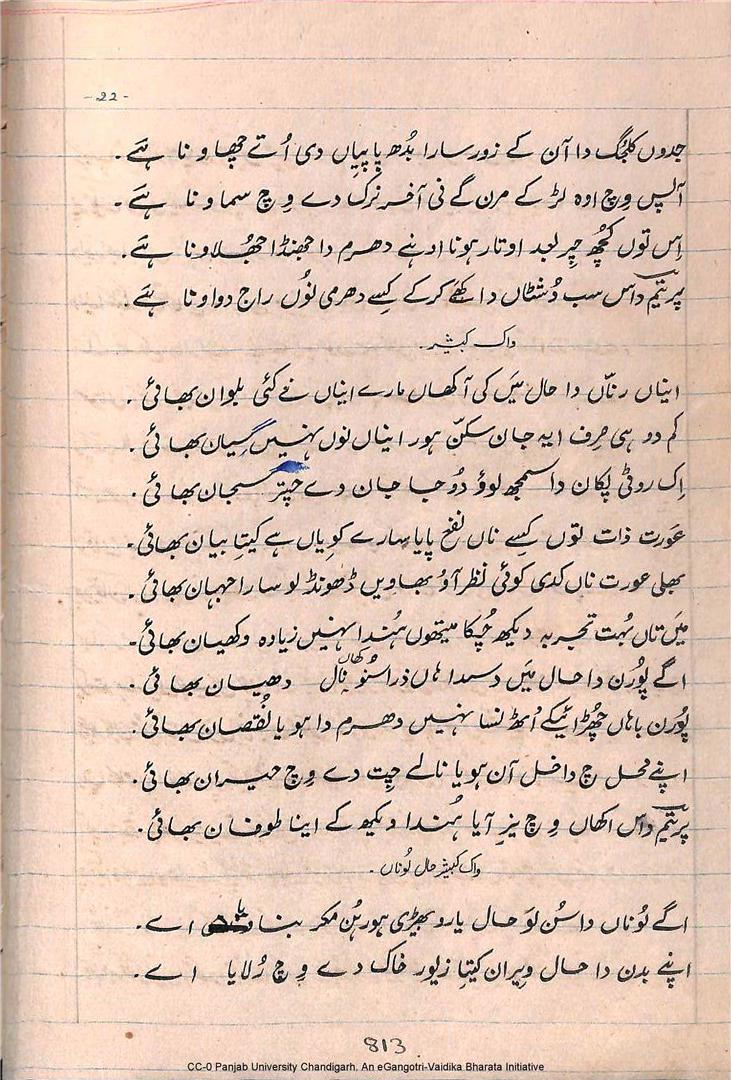 -22-
جدوں کلجگ دا آن کے زور سارا بُدھ پاپیاں دی اُتے چھاونا ہَے۔
آپس وِچ اوہ لڑ کے مرن گے نی آخر نرک دے وِچ سماونا ہَے۔
اِس توں کچُھ چِر بعد اوتار ہونا اوہنے دھرم دا جھنڈا جُھلاونا ہَے۔
پریتم داس سب دُشٹاں دا کھے کرکے کِسے دھرمی نوُں راج دواونا ہَے۔
واک کبیشر۔
ایناں رنّاں دا حال مَیں کی آکھاں مارے ایناں نے کئی بلوان بھائی۔
کم دو ہی صرف ایہ جان سکنّ ہور ایناں نوں نہیں گیان بھائی۔
اِک روٹی پکان دا سمجھ لوؤ دُوجا جان دے چپتر سجان بھائی۔
عَورت ذات توں کِسے ناں نفع پایا سارے کویاں ہے کیتا بیان بھائی۔
بھلی عورت ناں کدی کوئی نظر آؤ بھاویں ڈھونڈ لو سارا جہان بھائی۔
مَیں تاں بُہت تجربہ دیکھ چُکا میتھوں ہُندا نہیں زیادہ وکھیان بھائی۔
اگے پُورن دا حال مَیں دسدا ہاں ذرا سُنو کھاں نال دھیان بھائی۔
پُورن باہاں چُھڑائیکے اُٹھ نسا نہیں دھرم دا ہویا نُقصان بھائی۔
اپنے محل چ داخل آن ہویا نالے چِت دے وِچ حیران بھائی۔
پریتم داس اکھاں وِچ نِیر آیا ہُندا دیکھ کے اینا طوفان بھائی۔
واک کبیشر حال لُوناں۔
اگے لُوناں دا سُن لَو حال یارو بھیڑی ہور ہُن مکر بنایا اے۔
اپنے بدن دا حال ویران کیتا زیور خاک دے وِچ رُلایا اے۔
813
CC-0 Panjab University Chandigarh. An eGangotri-Vaidika Bharata Initiative